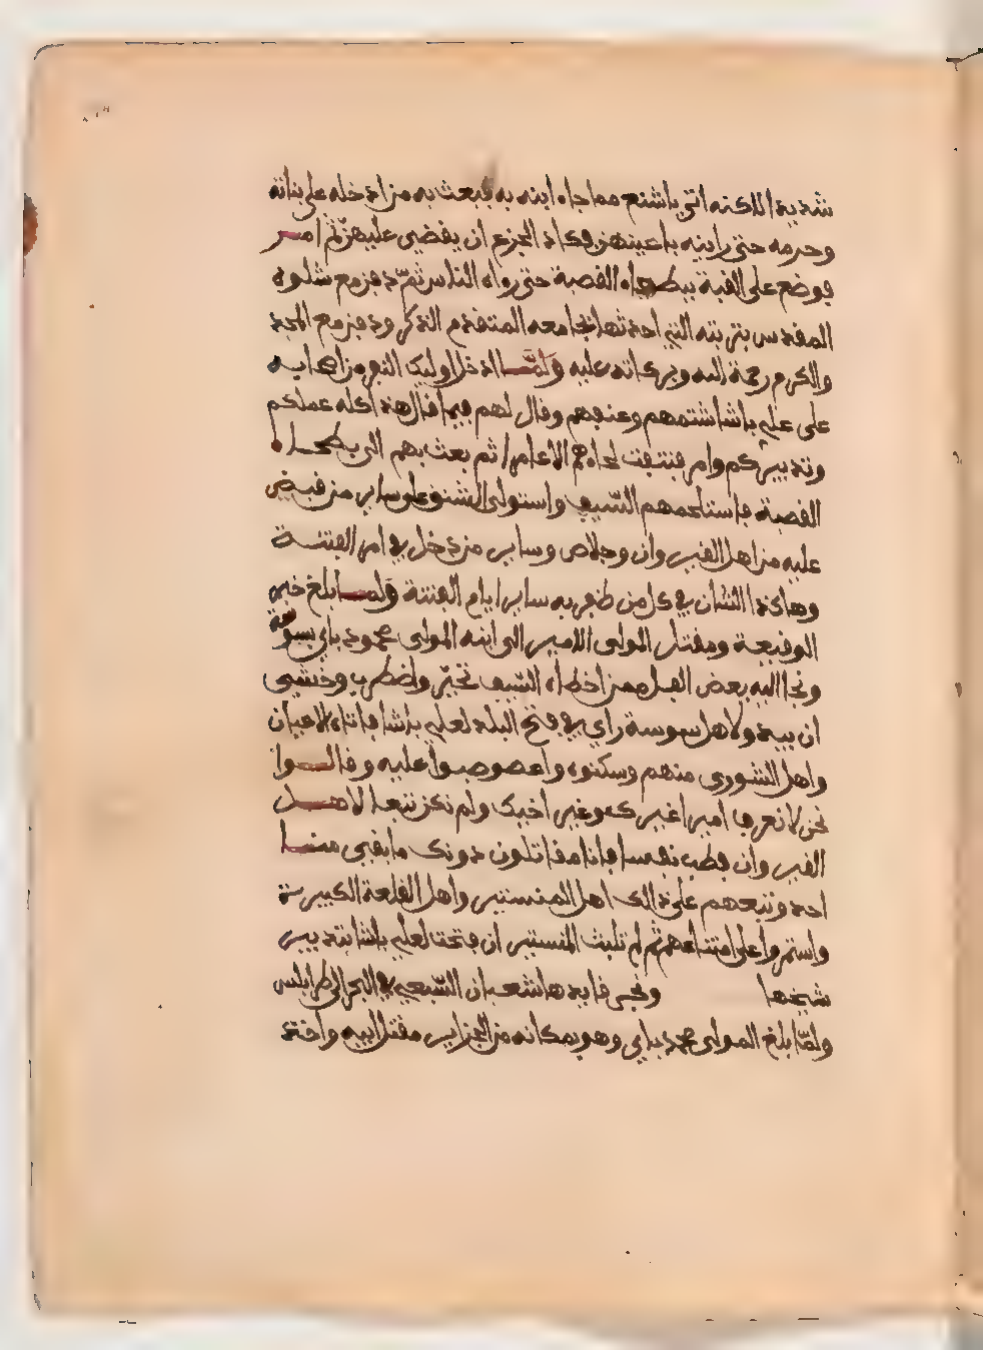 شديد اللكنه اتى باشنع مما جاء ابنه به فبعث به من ادخله على بناته
وحرمه حتى راينه باعينهن فكاد الجزع ان يقضي عليهن ثم امر
فوضع على القبة ببطحاء القصبة حتى رءاه الناس ثم دفن مع شلوه
المقدس بتربته التي احدثها بجامعه المتقدم الذكر ودفن مع المجد
والكرم رحمة الله وبركاته عليه ولما ادخل اوليك النفر من اصحابه
على علي باشا شتمهم وعنفهم وقال لهم فيما قال هذا كله عملكم
وتدبيركم وامر فنتفت لحاهم ثم بعث بهم الى بطحاء
القصبة فاستلحمهم السيف واستولى الشنق على ساير من قبض
عليه من اهل القيروان وجلاص وساير من دخل في امر الفتنة
وهاكذا الشان في كل من ظفر به ساير ايام الفتنة ولما بلغ خبر
الوقيعة ومقتل المولى الامير الى ابنه المولى محمود باي بسوسة
ونجا اليه بعض الفل ممن اخطاه السيف تحير واضطرب وخشي
ان يبدو لاهل سوسة راي في فتح البلد لعلي باشا فاتاه الاعيان
واهل الشورى منهم وسكنوه واعصوصبوا عليه وقالوا
نحن لا نعرف اميرا غيرك وغير اخيك ولم نكن تبعا لاهل
القيروان فطب نفسا فانا مقاتلون دونك ما بقي منا
احد وتبعهم على ذالك اهل المنستير واهل القلعة الكبيرة
واستمروا على امتناعهم ثم لم تلبث المنستير ان فتحت لعلي باشا بتدبير
شيخها ونجى قايدها شعبان السبعي في البحر الى طرابلس
ولما بلغ المولى محمد باي وهو بمكانه من الجزاير مقتل ابيه واخذ